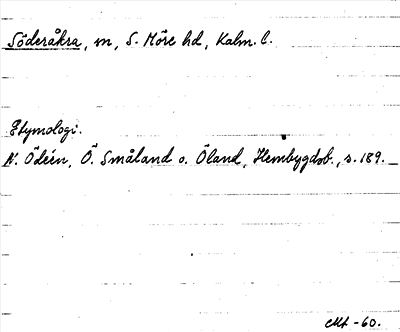 Söderåkra, m, S. Möre hd, Kalm. l.
Etymologi.
N. Ödéen, Ö. Småland o. Öland, Hembygdsb., s. 189.
-60.